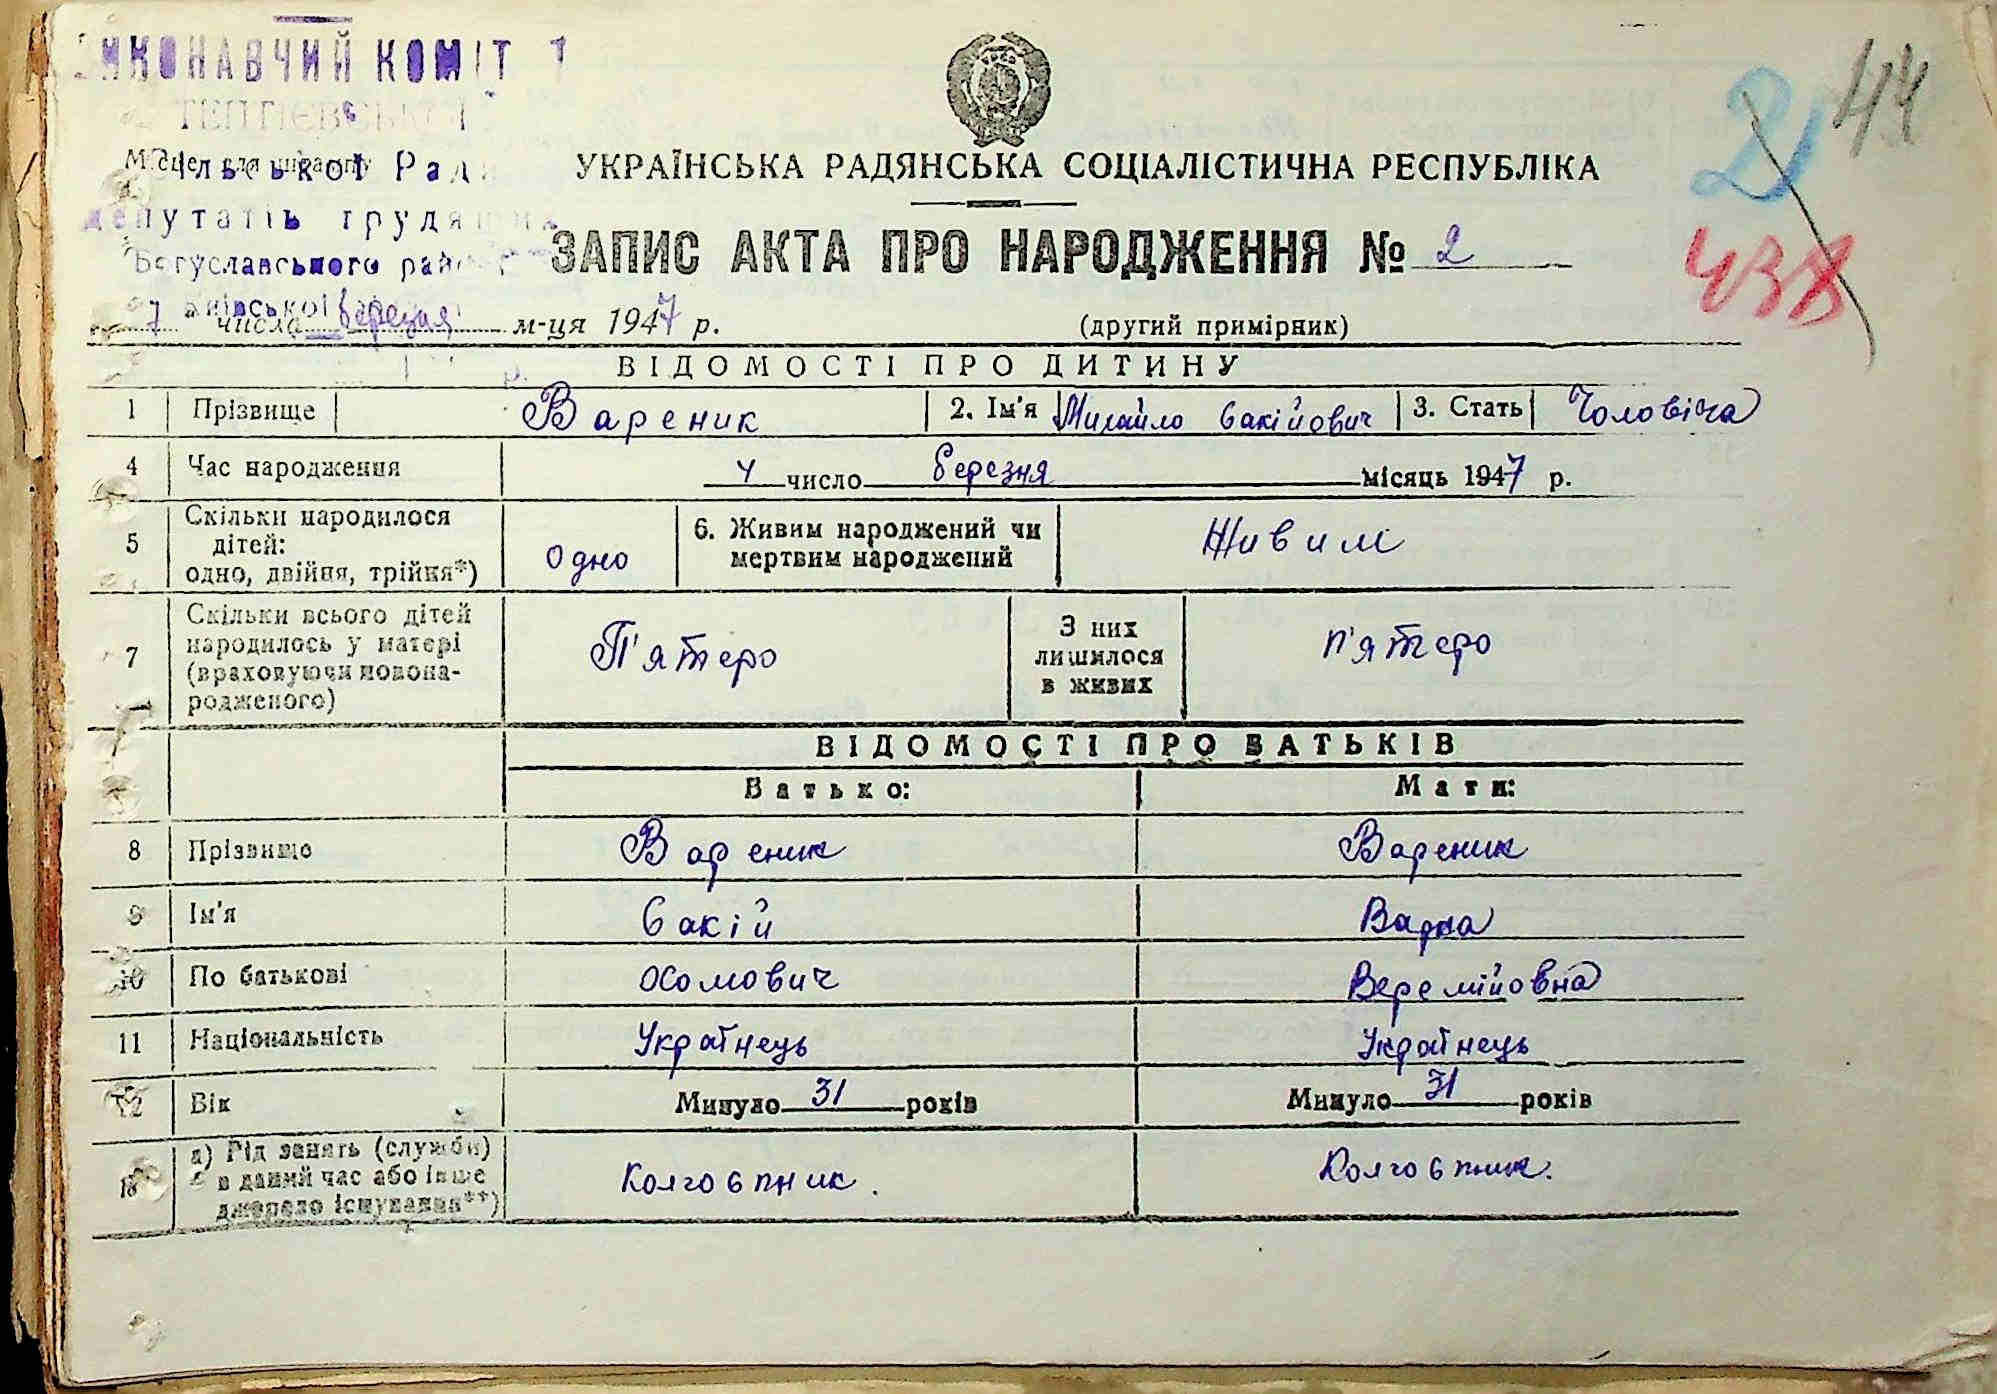 ВИКОНАВЧИЙ КОМІТЕТ
Місце для штампу
сільської Ради
депутатів трудящих
Богуславського району
Київської
44
2
438
УКРАЇНСЬКА РАДЯНСЬКА СОЦІАЛІСТИЧНА РЕСПУБЛІКА
ЗАПИС АКТА ПРО НАРОДЖЕННЯ № 2
7 числа березня м-ця 1947 р. (другий примірник)
ВІДОМОСТІ ПРО ДИТИНУ
1 Прізвище Вареник 2. Ім'я Михайло Єакійович 3. Стать Чоловіча
4 Час народження 4 число березня місяць 1947 р.
5 Скільки народилося дітей: одно, двійня, трійня*) Одно 6. Живим народжений чи мертвим народжений Живим
7 Скільки всього дітей народилось у матері (враховуючи новонародженого) П'ятеро З них лишилося в живих п'ятеро
ВІДОМОСТІ ПРО БАТЬКІВ
Батько: Мати:
8 Прізвище Вареник Вареник
9 Ім'я Єакій Варка
10 По батькові Охомович Веремійовна
11 Національність Українець Українець
12 Вік Минуло 31 років Минуло 31 років
13 а) Рід занять (служби) в даний час або інше джерело існування**) Колгоєпник. Колгоєпник.